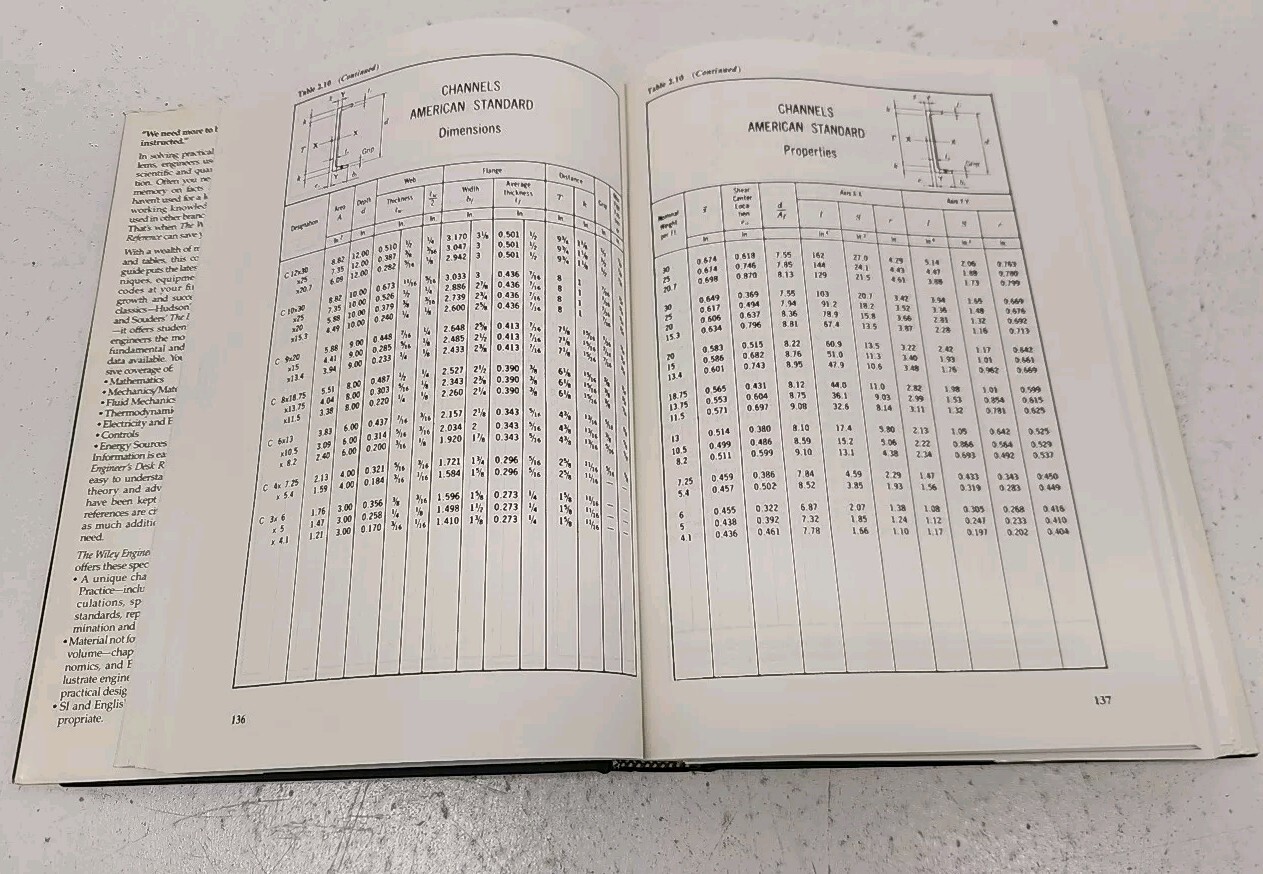 "We need more to b
instructed."
In solving practical
lems, engineers us
scientific and quan
tion. Often you ne
memory on facts
haven't used for a l
working knowled
used in other branc
That's when The W
Reference can save y
With a wealth of m
and tables, this co
guide puts the lates
niques, equipme
codes at your fi
growth and succe
classics—Hudson'
and Souders' The E
—it offers studen
engineers the mo
fundamental and
data available. You
sive coverage of
• Mathematics
• Mechanics/Mate
• Fluid Mechanics
• Thermodynami
• Electricity and E
• Controls
• Energy Sources
Information is ea
Engineer's Desk R
easy to understa
theory and adv
have been kept
references are ci
as much additio
need.
The Wiley Engine
offers these spec
• A unique cha
Practice—inclu
culations, sp
standards, rep
mination and
• Material not fo
volume—chap
nomics, and E
lustrate engine
practical desig
• SI and Englis
propriate.
Table 2.10 (Continued)
CHANNELS
AMERICAN STANDARD
Dimensions
Designation Area A Depth d Web Flange Distance
Thickness Width Average Thickness T k Grip
C 12x30 8.82 12.00 0.510 ½ ¼ 3.170 3⅛ 0.501 ½ 9¾ 1⅛
x25 7.35 12.00 0.387 ⅜ 3/16 3.047 3 0.501 ½ 9¾ 1⅛
x20.7 6.09 12.00 0.282 5/16 ⅛ 2.942 3 0.501 ½ 9¾ 1⅛
C 10x30 8.82 10.00 0.673 11/16 5/16 3.033 3 0.436 7/16 8 1
x25 7.35 10.00 0.526 ½ ¼ 2.886 2⅞ 0.436 7/16 8 1
x20 5.88 10.00 0.379 ⅜ 3/16 2.739 2¾ 0.436 7/16 8 1
x15.3 4.49 10.00 0.240 ¼ ⅛ 2.600 2⅝ 0.436 7/16 8 1
C 9x20 5.88 9.00 0.448 7/16 ¼ 2.648 2⅝ 0.413 7/16 7⅛ 15/16
x15 4.41 9.00 0.285 5/16 ⅛ 2.485 2½ 0.413 7/16 7⅛ 15/16
x13.4 3.94 9.00 0.233 ¼ ⅛ 2.433 2⅜ 0.413 7/16 7⅛ 15/16
C 8x18.75 5.51 8.00 0.487 ½ ¼ 2.527 2½ 0.390 ⅜ 6⅛ 15/16
x13.75 4.04 8.00 0.303 5/16 ⅛ 2.343 2⅜ 0.390 ⅜ 6⅛ 15/16
x11.5 3.38 8.00 0.220 ¼ ⅛ 2.260 2¼ 0.390 ⅜ 6⅛ 15/16
C 6x13 3.83 6.00 0.437 7/16 3/16 2.157 2⅛ 0.343 5/16 4⅜ 13/16
x10.5 3.09 6.00 0.314 5/16 3/16 2.034 2 0.343 5/16 4⅜ 13/16
x 8.2 2.40 6.00 0.200 3/16 ⅛ 1.920 1⅞ 0.343 5/16 4⅜ 13/16
C 4x 7.25 2.13 4.00 0.321 5/16 3/16 1.721 1¾ 0.296 5/16 2⅝ 11/16
x 5.4 1.59 4.00 0.184 3/16 1/16 1.584 1⅝ 0.296 5/16 2⅝ 11/16 —
C 3x 6 1.76 3.00 0.356 ⅜ 3/16 1.596 1⅝ 0.273 ¼ 1⅝ 11/16 —
x 5 1.47 3.00 0.258 ¼ ⅛ 1.498 1½ 0.273 ¼ 1⅝ 11/16 —
x 4.1 1.21 3.00 0.170 3/16 1/16 1.410 1⅜ 0.273 ¼ 1⅝ 11/16 —
136
Table 2.10 (Continued)
CHANNELS
AMERICAN STANDARD
Properties
Nominal Weight per Ft Shear Center Location d/Af Axis X-X Axis Y-Y
30 0.674 0.618 7.55 162 27.0 4.29 5.14 2.06 0.763
25 0.674 0.746 7.85 144 24.1 4.43 4.47 1.88 0.780
20.7 0.698 0.870 8.13 129 21.5 4.61 3.88 1.73 0.799
30 0.649 0.369 7.55 103 20.7 3.42 3.94 1.65 0.669
25 0.617 0.494 7.94 91.2 18.2 3.52 3.36 1.48 0.676
20 0.606 0.637 8.36 78.9 15.8 3.66 2.81 1.32 0.692
15.3 0.634 0.796 8.81 67.4 13.5 3.87 2.28 1.16 0.713
20 0.583 0.515 8.22 60.9 13.5 3.22 2.42 1.17 0.642
15 0.586 0.682 8.76 51.0 11.3 3.40 1.93 1.01 0.661
13.4 0.601 0.743 8.95 47.9 10.6 3.48 1.76 0.962 0.669
18.75 0.565 0.431 8.12 44.0 11.0 2.82 1.98 1.01 0.599
13.75 0.553 0.604 8.75 36.1 9.03 2.99 1.53 0.854 0.615
11.5 0.571 0.697 9.08 32.6 8.14 3.11 1.32 0.781 0.625
13 0.514 0.380 8.10 17.4 5.80 2.13 1.05 0.642 0.525
10.5 0.499 0.486 8.59 15.2 5.06 2.22 0.866 0.564 0.529
8.2 0.511 0.599 9.10 13.1 4.38 2.34 0.693 0.492 0.537
7.25 0.459 0.386 7.84 4.59 2.29 1.47 0.433 0.343 0.450
5.4 0.457 0.502 8.52 3.85 1.93 1.56 0.319 0.283 0.449
6 0.455 0.322 6.87 2.07 1.38 1.08 0.305 0.268 0.416
5 0.438 0.392 7.32 1.85 1.24 1.12 0.247 0.233 0.410
4.1 0.436 0.461 7.78 1.66 1.10 1.17 0.197 0.202 0.404
137